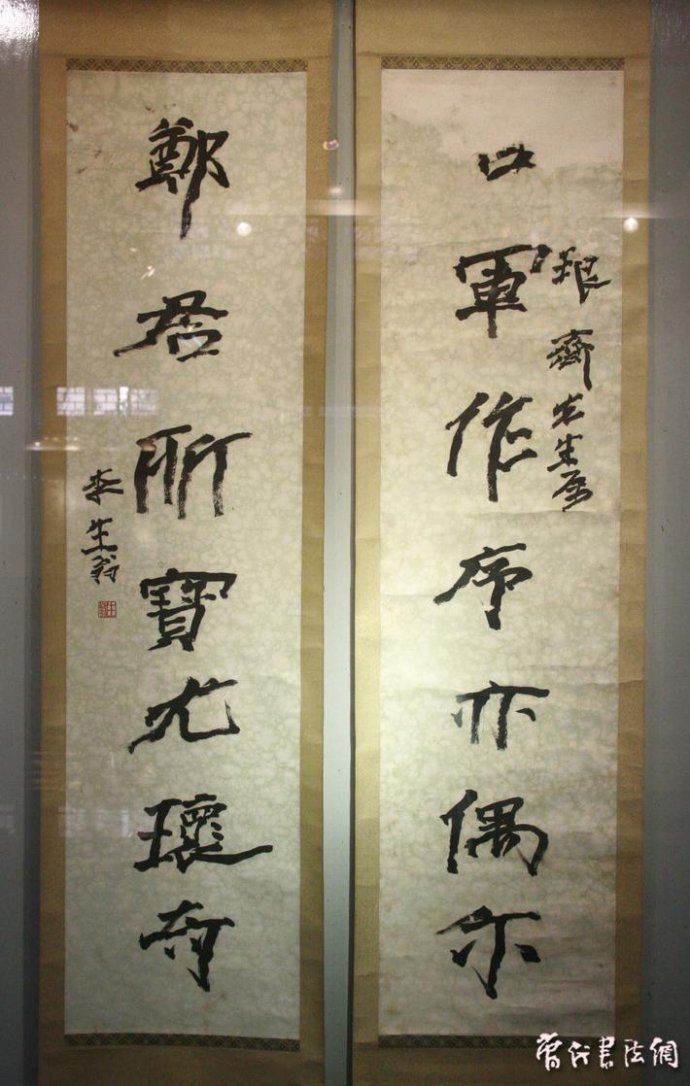 口軍作序亦偶尒
齋先生属
鄭君所寶尤瓌奇
李生翁
當代書法網